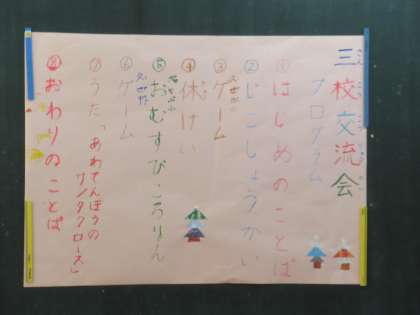 三校交流会
プログラム
①はじめのことば
②じこしょうかい
③ゲーム
④休けい
⑤おむすびころりん
⑥ゲーム
⑦うた「あわてんぼうの
サンタクロース」
⑧おわりのことば